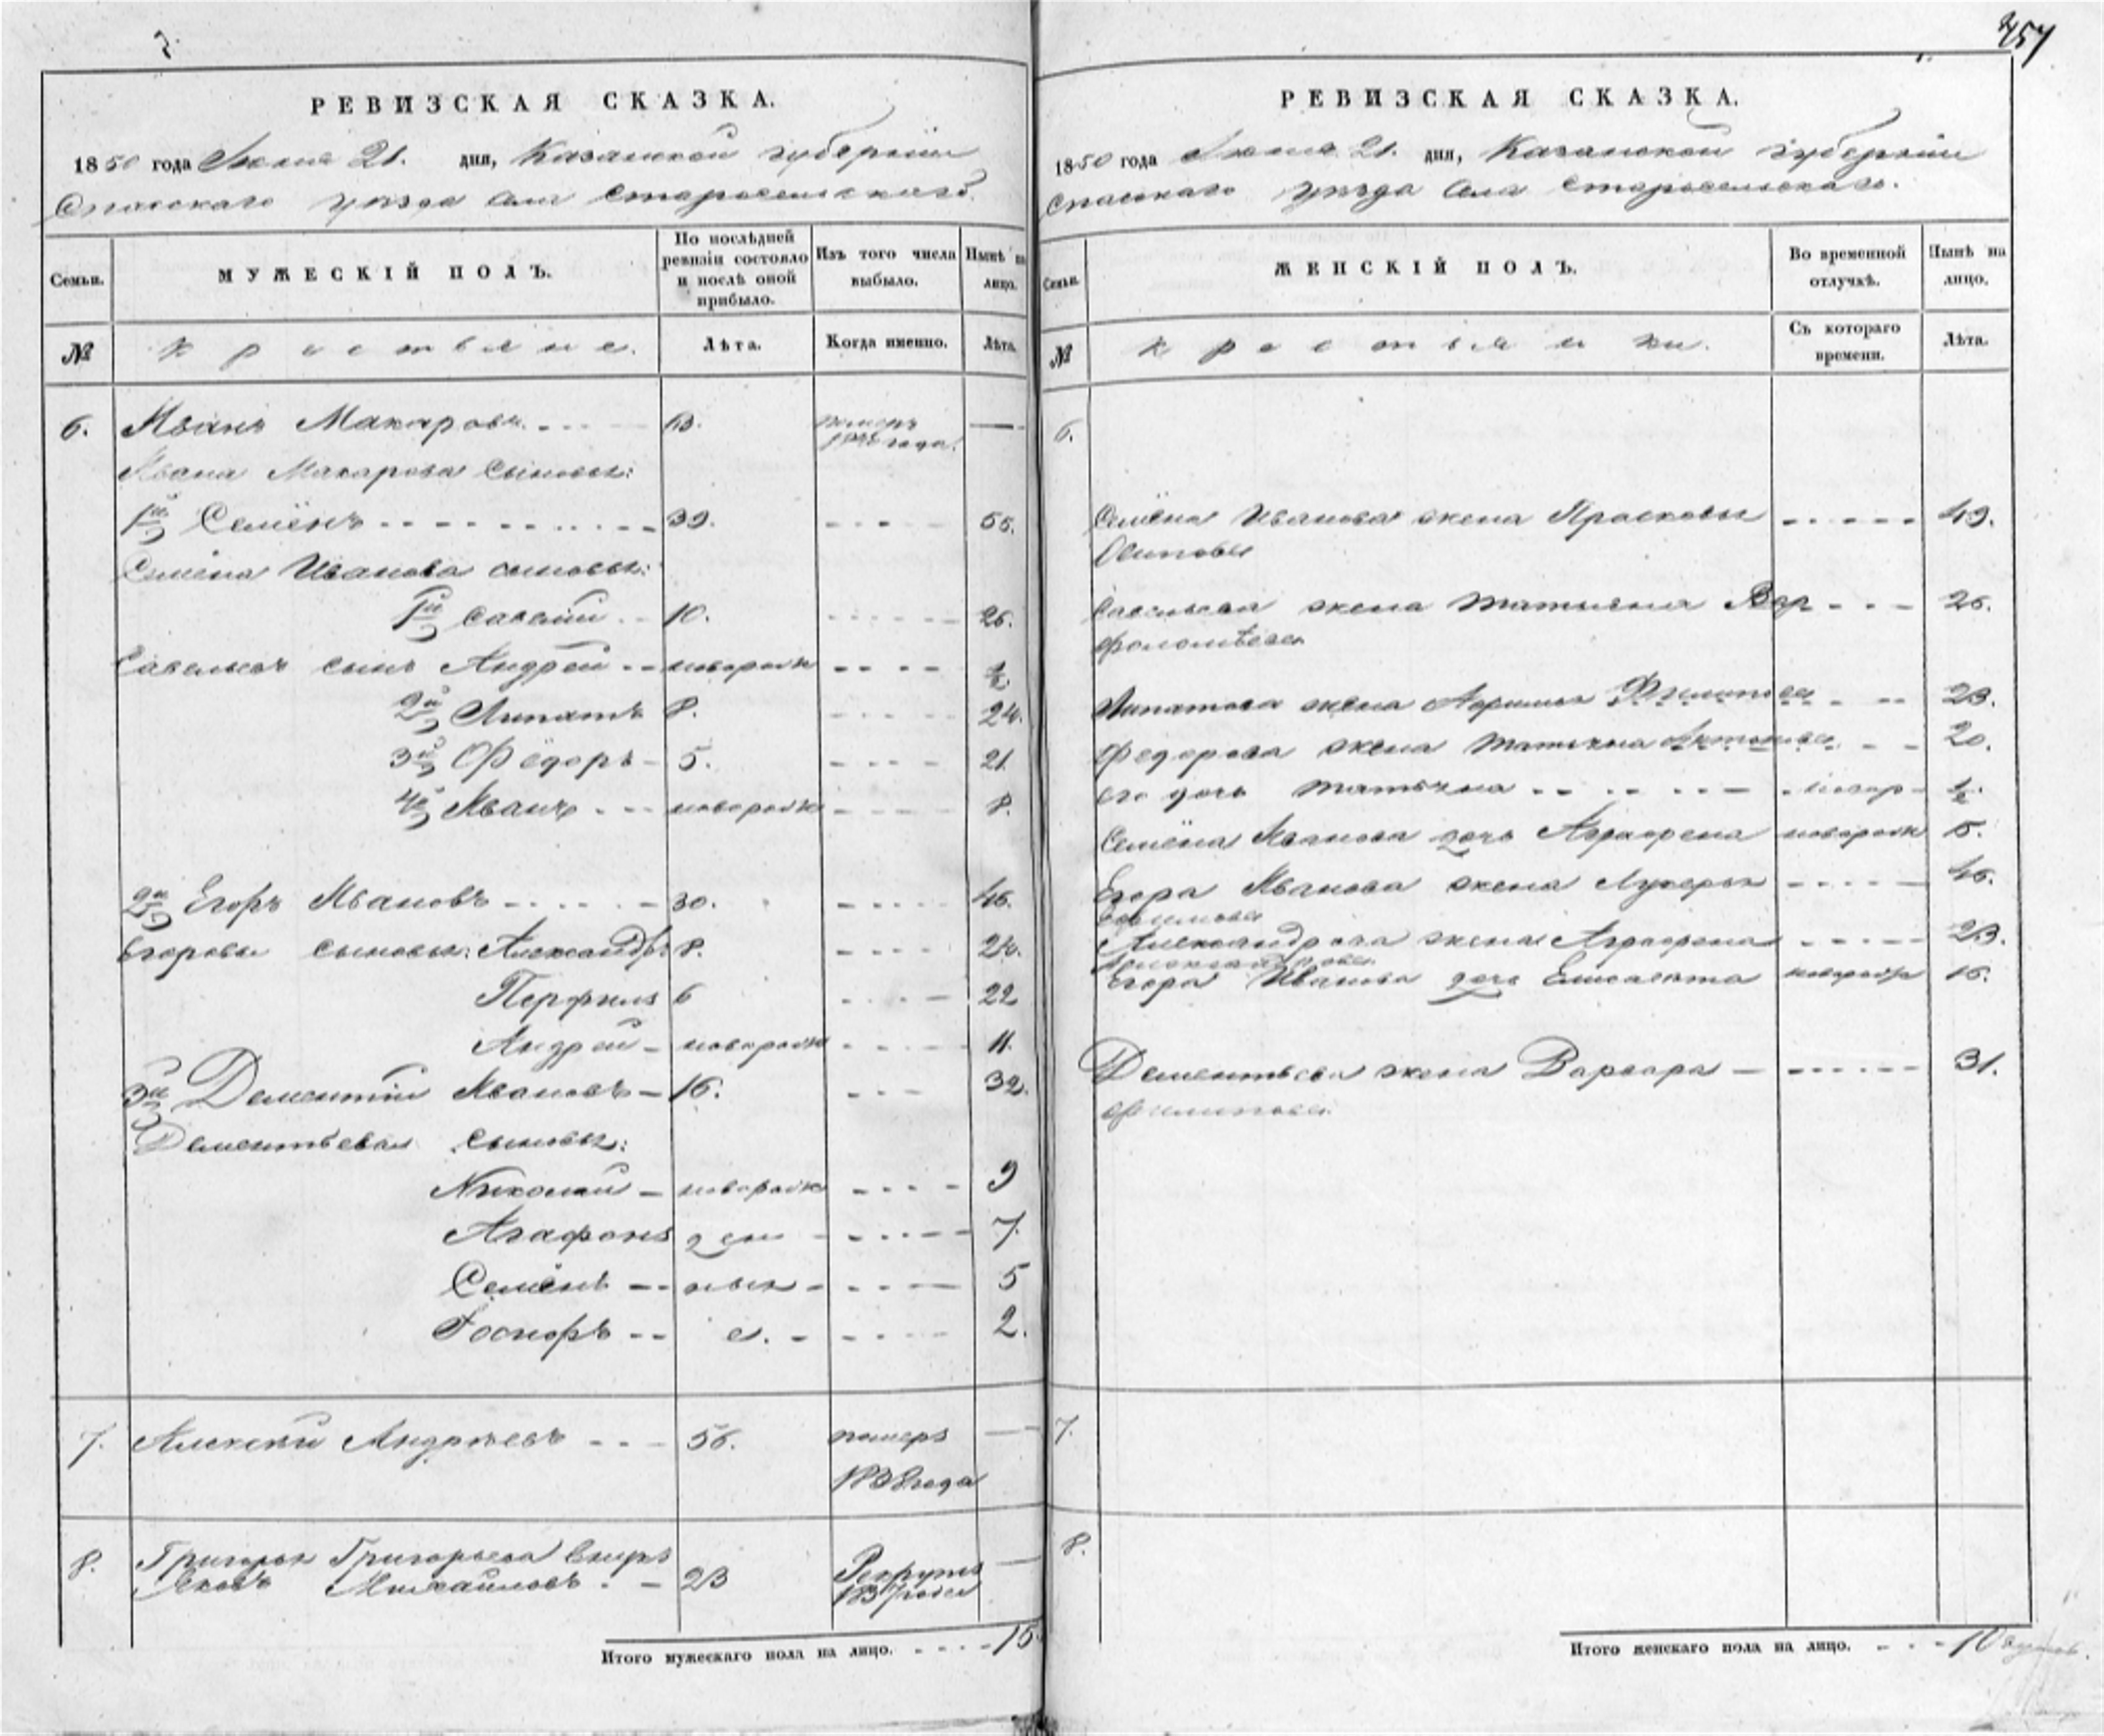 7.
РЕВИЗСКАЯ СКАЗКА.
1850 года Июня 21. дня, Казанской губернiи
Спасскаго уѣзда села Старосельскаго.
Семьи.
МУЖЕСКІЙ ПОЛЪ.
По послѣдней ревизіи состояло и послѣ оной прибыло.
Изъ того числа выбыло.
Нынѣ на лицо.
№
крестьяне.
Лѣта.
Когда именно.
Лѣта.
6. Иванъ Макаровъ 63. померъ —
года.
Ивана Макарова сыновья:
1й Семёнъ 39. 55.
Семёна Иванова сыновья:
1й Савелiй 10. 26.
Савельевъ сынъ Андрей новорожд ½.
2й Липатъ 8. 24.
3й Фёдоръ 5. 21
4й Иванъ новорожд 8.
2й Егоръ Ивановъ 30. 46.
Егоровы сыновья: Александръ 8. 24.
Перфилъ 6 22
Андрей новорожд 11.
3й Дементiй Ивановъ 16. 32.
Дементьева сыновья:
Николай новорожд 9
Агафонъ ден 7.
Семёнъ ныя 5
е. 2.
7. Алексѣй Андрѣевъ 56. померъ —
1838 года
8. Григорья Григорьева
Яковъ Михайловъ 23 Рекрутъ —
1837 года
Итого мужескаго пола на лицо. 15
757
РЕВИЗСКАЯ СКАЗКА.
1850 года Июня 21. дня, Казанской губернiи
Спасскаго уѣзда села Старосельскаго.
Семьи.
ЖЕНСКІЙ ПОЛЪ.
Во временной отлучкѣ.
Нынѣ на лицо.
№
крестьянки.
Съ котораго времени.
Лѣта.
6.
Семёна Иванова жена Прасковья 49.
Осипова
Савельева жена Татьяна Вар 26.
фоломѣева
Липатова жена Афимья Филипова 23.
Федорова жена Татьяна Антонова 20.
его дочь Татьяна новор ½.
Семёна Иванова дочь Аграфена новорожд 15.
Егора Иванова жена Лукерья 46.
Ефимова
Александрова жена Аграфена 23.
Егора Иванова дочь Елисавета новорожд 16.
Дементьева жена Варвара 31.
Филипова
7.
8.
Итого женскаго пола на лицо. 10